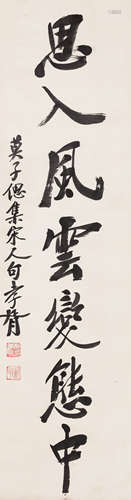 思入風雲變態中
莫子偲集宋人句孝胥